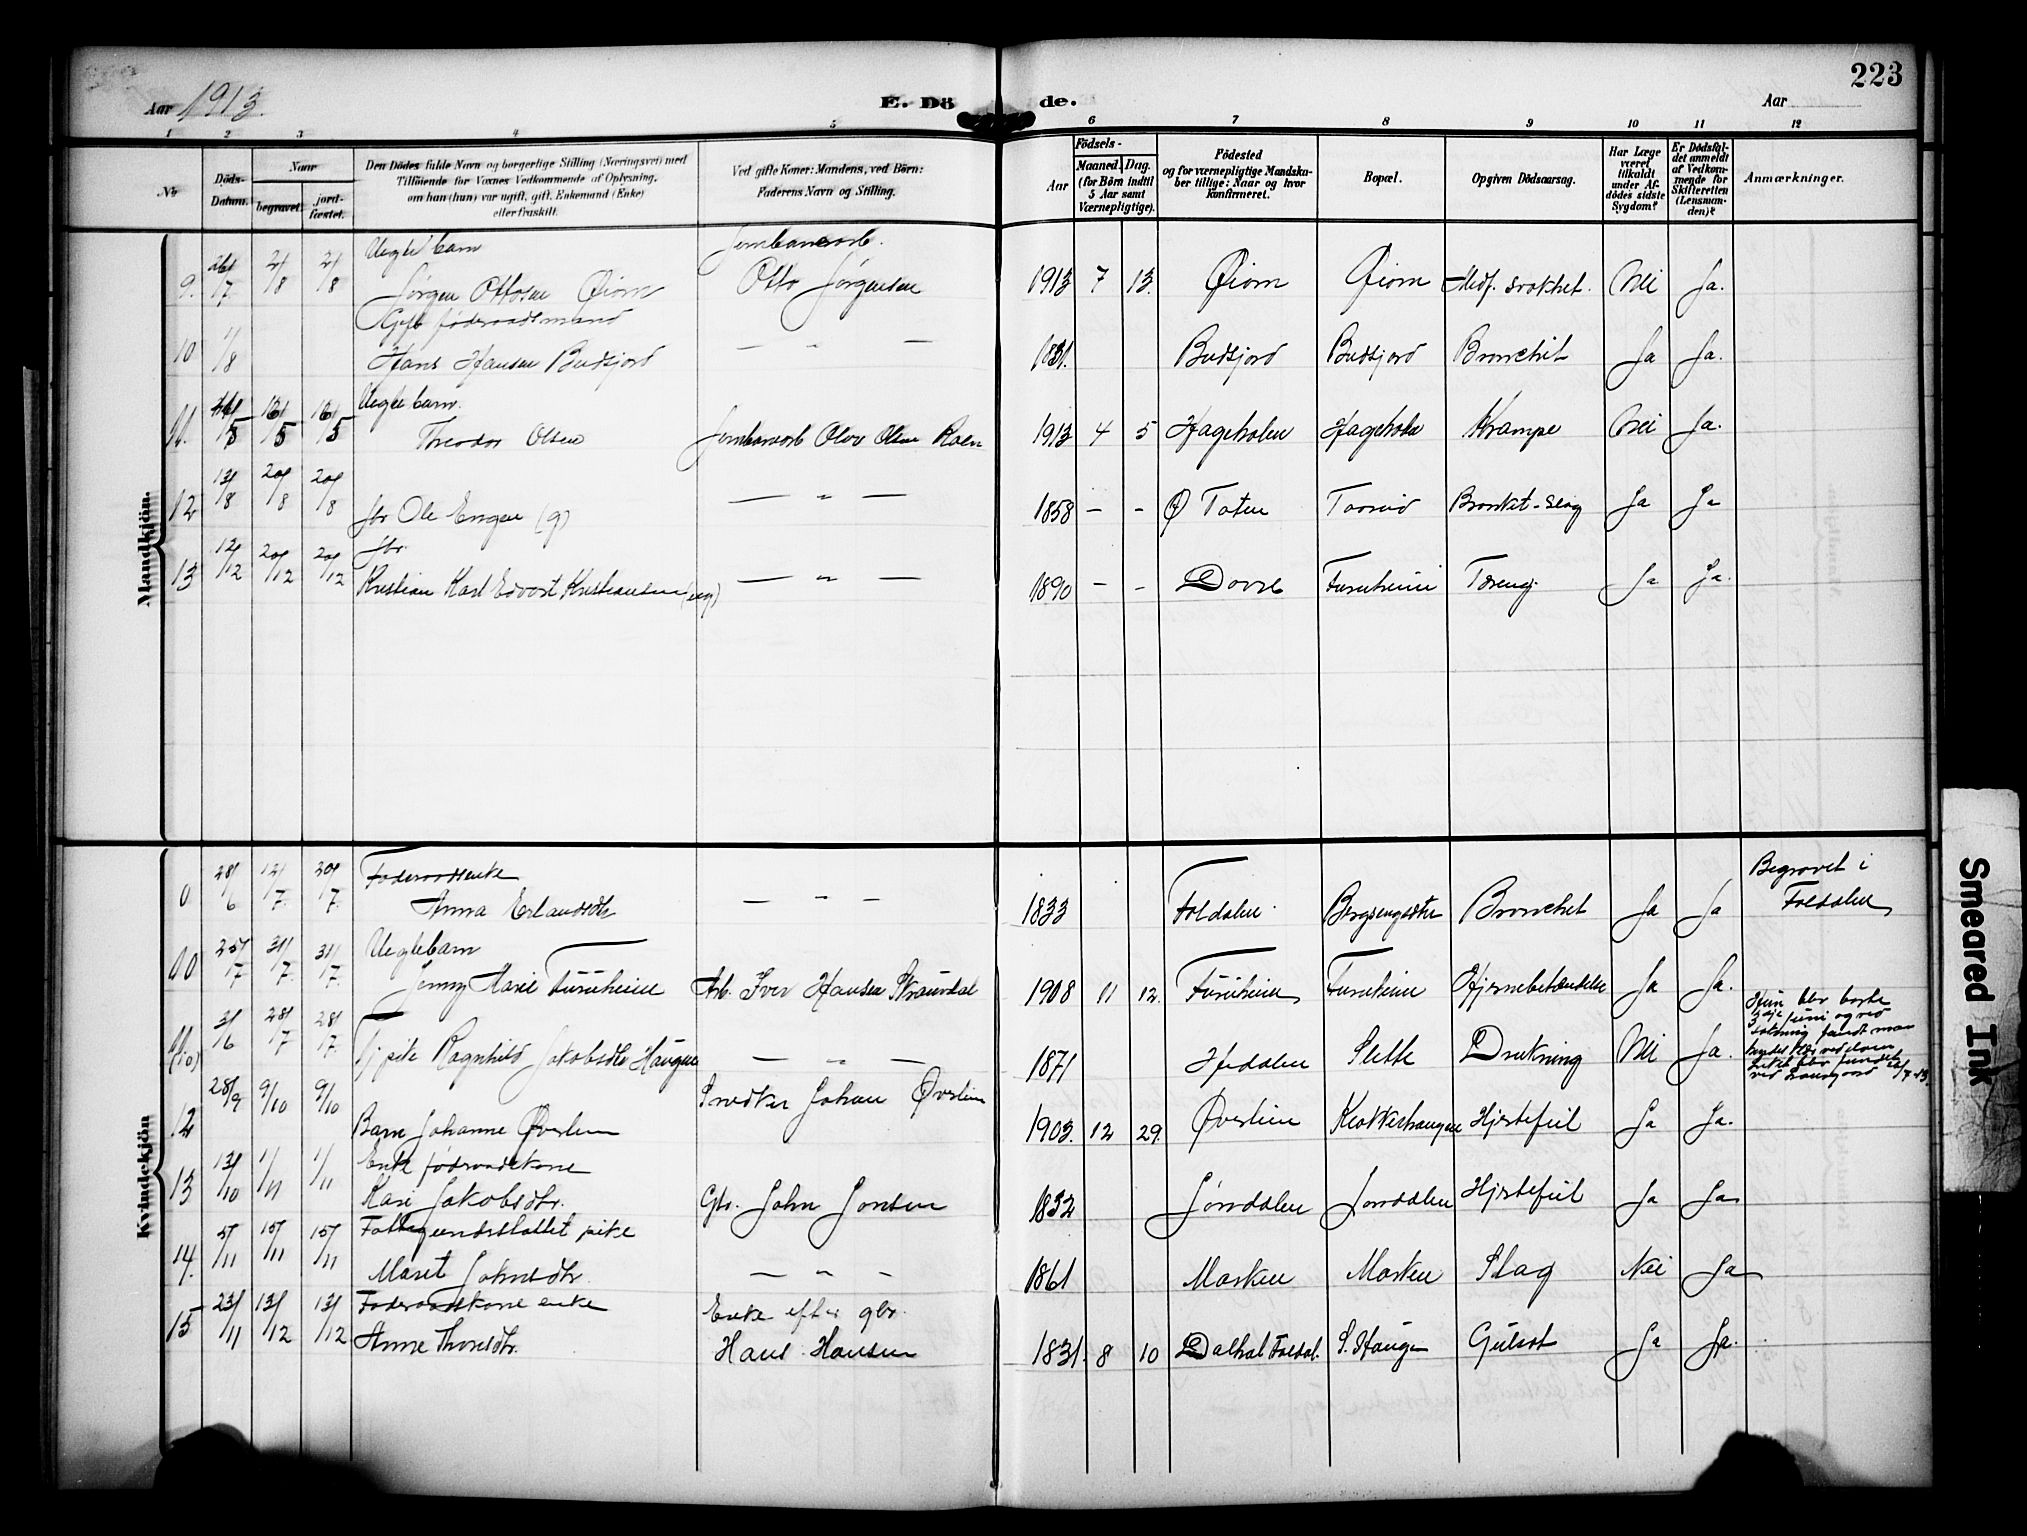 223
Aar 1913.
E. Dö de.
Aar
1 2 3 4 5 6 7 8 9 10 11 12
No
Döds-Datum.
Naar
begravet.
jord-fæstet.
Den Dödes fulde Navn og borgerlige Stilling (Næringsvei) med
Tilföiende for Voxnes Vedkommende af Oplysning,
om han (hun) var ugift, gift, Enkemand (Enke)
eller fraskilt.
Ved gifte Koner: Mandens, ved Börn:
Faderens Navn og Stilling.
Födsels-
Aar
Maaned. Dag.
(for Börn indtil
5 Aar samt
Værnepligtige).
Födested
og for værnepligtige Mandska-
ber tillige: Naar og hvor
konfirmeret.
Bopæl.
Opgiven Dödsaarsag.
Har Læge
været
tilkaldt
under Af-
dödes sidste
Sygdom?
Er Dödsfal-
det anmeldt
af Vedkom-
mende for
Skifteretten
(Lensman-
den)?
Anmærkninger.
Mandkjön.
9. 26/7 2/8 2/8 Uegte barn Jørgen Ottosen Øiom Jernbanearb. Otto Jørgensen 1913 7 13. Øiom Øiom Medf. svakhet. Nei Ja.
10 1/8 Gift føderaadsmand Hans Hansen Budsjord — „ — 1831. Budsjord Budsjord Bronchit Ja Ja.
11. 16/5 16/5 Uegte barn. Theodor Olsen Jernbanearb Olav Olsen Roen 1913 4 5 Hageholen Hageholen Krampe Nei Ja.
12 13/8 20/8 20/8 Jbr Ole Engen (g) — „ — 1858 — - Ø Toten Bronkit - Slag Ja Ja
13 12/12 20/12 20/12 Jbr. Kristian Karl Edvart Kristiansen (ug) — „ — 1890 - - Dovre Furuheim Tæring Ja Ja.
Kvindekjön
0 28/6 12/7 20/7 Føderaadsenke Anna Erlandsdtr — „ — 1833 Foldalen. Bergsengsætr Bronchit Ja Ja Begravet i
Foldalen
00 25/7 31/7. 31/7. Uegtebarn Jenny Marie Furuheim Arb. Iver Hansen 1908 11 12. Furuheim Furuheim Hjernebetændelse Ja Ja.
11 (10) 3/6 28/7 28/7. Tj pike Ragnhild Jakobsdtr Haugen — „ — 1871 Hjedalen Slette Drukning Nei Ja. Hun blev borte
3dje juni og ved
søkning fandt man
liket blev fundet
12 28/9 9/10 9/10 Barn Johanne Øverlien Snedker Johan Øverlien 1903. 12 29. Øverlien Klokkerhaugen Hjertefeil Ja Ja.
13 13/10 1/11 1/11 Enke føderaadskone Kari Jakobsdtr. Gbr. John Jonsen 1832 Jønndalen Jønndalen Hjertefeil Ja Ja
14. 5/11 15/11 15/11 Fattigunderstøttet pike Marit Johnsdtr. — „ — 1861 Morken Morken Slag Nei Ja
15 23/11 13/12 13/12 Føderaadskone enke Anne Thorsdtr. Enke efter gbr. Hans Hansen 1831. 8 10 Dalhal Foldal. S. Haugen Gulsot Ja Ja.
Smeared Ink